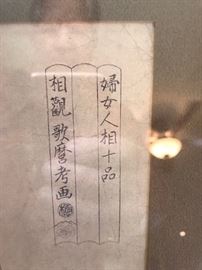 婦女人相十品
相觀歌麿考画